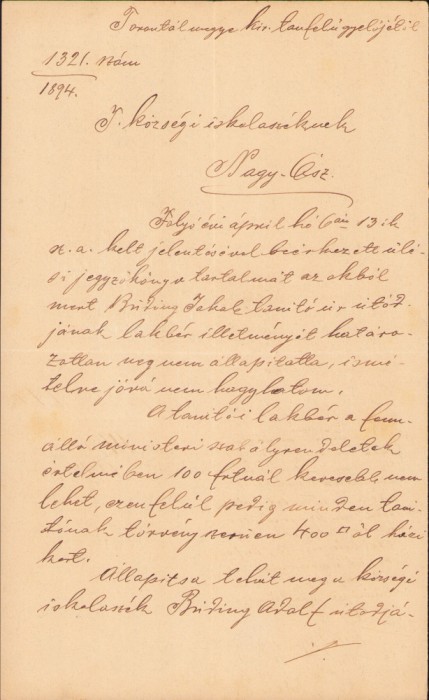 Torontál megye kir. tanfelügyelőjétől
1321. szám
1894.
T. községi iskolaszéknek
Nagy-Ősz.
Folyó évi április hó 6án 13 ik
sz. a. kelt jelentésével beérkezett ülé-
si jegyzőkönyv tartalmát az okból
mert Büding Jakab tanító úr utód-
jának lakbér illetményét határo-
zatlan meg nem állapitatta, ismé-
telve jóvá nem hagyhatom.
A tanítói lakbér a fenn-
álló ministeri szabályrendeletek
értelmében 100 frtnál kevesebb nem
lehet, ezenfelül pedig minden taní-
tónak törvényszerűen 400 □ öl házi
kert.
Állapitsa tehát meg a községi
iskolaszék Büding Adolf utódjá-